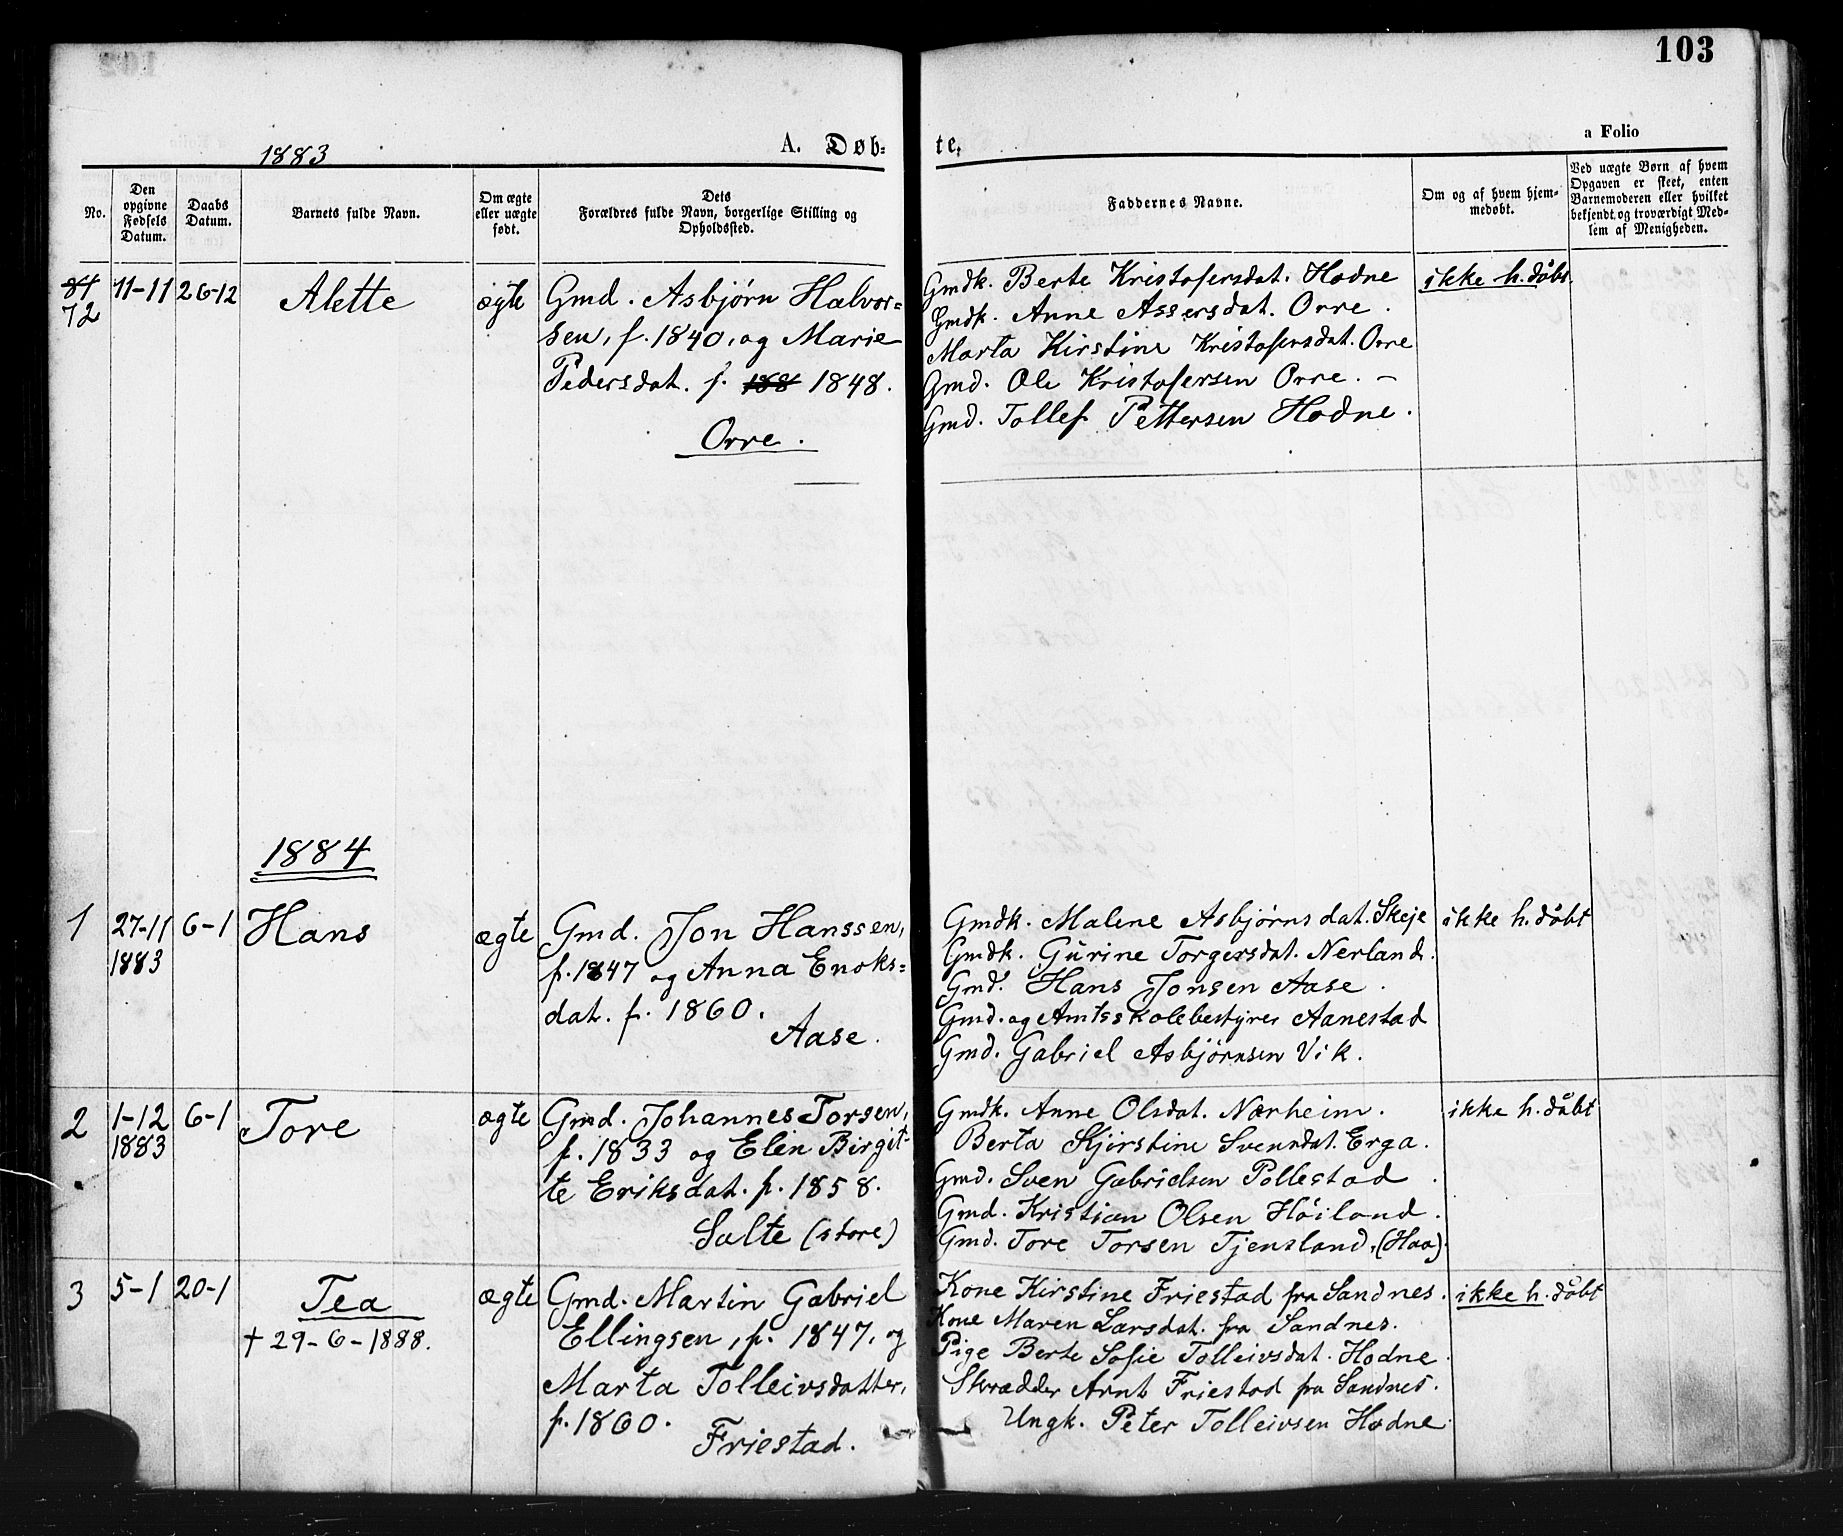 103
a Folio
1883
A. Døb-
te.
No.
Den opgivne Fødsels Datum.
Daabs Datum.
Barnets fulde Navn.
Om ægte eller uægte født.
Dets Forældres fulde Navn, borgerlige Stilling og Opholdssted.
Faddernes Navne.
Om og af hvem hjem-
medøbt.
Ved uægte Børn af hvem
Opgaven er skeet, enten
Barnemoderen eller hvilket
bekjendt og troværdigt Med-
lem af Menigheden.
84
72
11-11
26-12
Alette
ægte
Gmd. Asbjørn Halvor=
sen, f. 1840, og Marie
Pedersdat. f. 188 1848.
Orre.
Gmdk. Berte Kristofersdat. Hodne
Gmdk. Anne Assersdat. Orre.
Marta Kirstine Kristofersdat. Orre
Gmd. Ole Kristofersen Orre. -
Gmd. Tollef Pettersen Hodne.
ikke h. döbt.
1884
1
27-11
1883
6-1
Hans
ægte
Gmd. Jon Hanssen,
f. 1847 og Anna Enoks=
dat. f. 1860.
Aase.
Gmdk. Malene Asbjørnsdat. Skeje
Gmdk. Gurine Torgersdat. Nerland.
Gmd. Hans Jonsen Aase.
Gmd. og Amtsskolebestyrer Aanestad
Gmd. Gabriel Asbjørnsen Vik.
ikke h. döbt
2
1-12
1883
6-1
Tore
ægte
Gmd. Johannes Torsen,
f. 1833 og Elen Birgit-
te Eriksdat. f. 1858.
Salte (store)
Gmdk. Anne Olsdat. Nærheim.
Berta Kjirstine Svensdat. Erga.
Gmd. Sven Gabrielsen Pollestad.
Gmd. Kristian Olsen Höiland.
Gmd. Tore Torsen Tjensland, (Haa).
ikke h. döbt
3
5-1
20-1
Tea
† 29-6-1888.
ægte
Gmd. Martin Gabriel
Ellingsen, f. 1847, og
Marta Tolleivsdatter,
f. 1860.
Friestad.
Kone Kirstine Friestad fra Sandnes.
Kone Maren Larsdat. fra Sandnes.
Pige Berte Sofie Tolleivsdat. Hodne.
Skrædder Arnt Friestad fra Sandnes.
Ungk. Peter Tolleivsen Hodne
ikke h. döbt